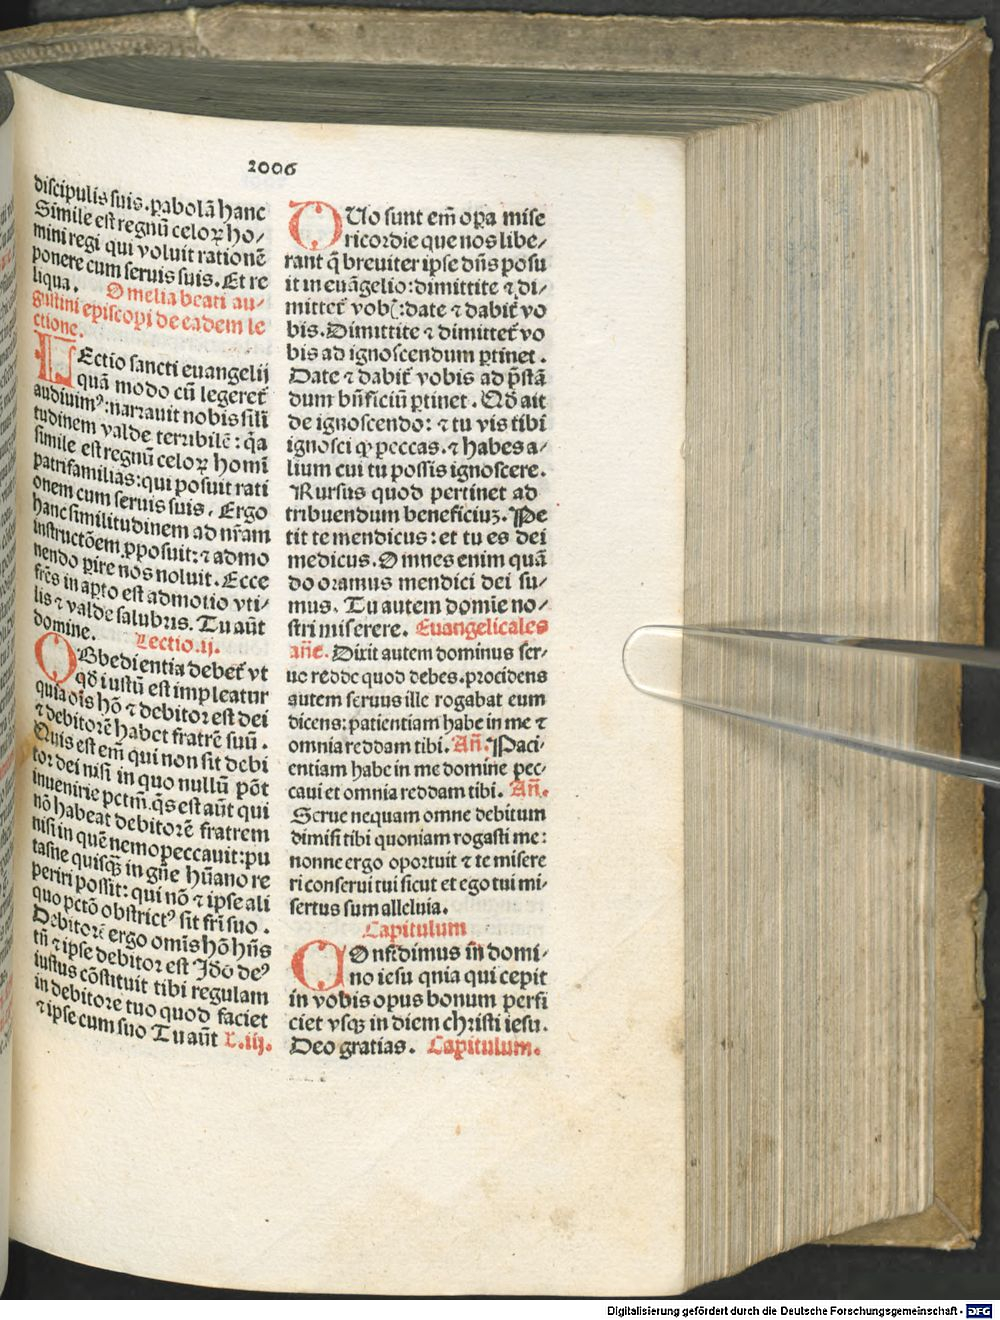 2006
discipulis suis. ꝑabolā hanc
Simile est regnū celoꝝ ho/
mini regi qui voluit rationē
ponere cum seruis suis. Et re
liqua. Omelia beati au/
gustini episcopi de eadem le
ctione.
LEctio sancti euangelij
quā modo cū legeret̄
audiuimꝰ: narrauit nobis sili
tudinem valde terribilē: q̄a
simile est regnū celoꝝ homī
patrifamilias: qui posuit rati
onem cum seruis suis. Ergo
hanc similitudinem ad nr̄am
instructōem ꝓposuit: ⁊ admo
nendo ꝑire nos noluit. Ecce
fr̄es in aꝑto est admotio vti/
lis ⁊ valde salubris. Tu aūt
domine. Lectio .ij.
OBbedientia debet̄ vt
qđ iustū est impleatur
quia oīs hō ⁊ debitor est dei
⁊ debitorē habet fratrē suū.
Quis est em̄ qui non sit debi
tor dei nisi in quo nullū pōt
inueniri pctm̄. q̄s est aūt qui
nō habeat debitorē fratrem
nisi in quē nemo peccauit: pu
tasne quisqꝫ in gn̄e hūano re
periri possit: qui nō ⁊ ipse ali
quo pctō obstrictꝰ sit fr̄i suo.
Debitorē ergo omīs hō hn̄s
tn̄ ⁊ ipse debitor est Idō deꝰ
iustus cōstituit tibi regulam
in debitore tuo quod faciet
⁊ ipse cum suo Tu aūt L. iij.
DUo sunt em̄ oꝑa mise
ricordie que nos libe/
rant q̄ breuiter ipse dn̄s posu
it in euāgelio: dimittite ⁊ di/
mittet̄ vob̄: date ⁊ dabit̄ vo
bis. Dimittite ⁊ dimittet̄ vo
bis ad ignoscendum ꝑtinet.
Date ⁊ dabit̄ vobis ad p̄stā
dum bn̄ficiū ꝑtinet. Qđ ait
de ignoscendo: ⁊ tu vis tibi
ignosci qꝙ peccas. ⁊ habes a/
lium cui tu possis ignoscere.
Rursus quod pertinet ad
tribuendum beneficiuꝫ. Pe
tit te mendicus: et tu es dei
medicus. Omnes enim quā
do oramus mendici dei su/
mus. Tu autem domīe no/
stri miserere. Euangelicales
añe. Dixit autem dominus ser-
uo redde quod debes. procidens
autem seruus ille rogabat eum
dicens: patientiam habe in me ⁊
omnia reddam tibi. Añ. Paci-
entiam habe in me domine pec-
caui et omnia reddam tibi. Añ.
Serue nequam omne debitum
dimisi tibi quoniam rogasti me:
nonne ergo oportuit ⁊ te misere
ri conserui tui sicut et ego tui mi-
sertus sum alleluia.
Capitulum
COnfidimus in domi-
no iesu qnia qui cepit
in vobis opus bonum perfi
ciet vsqꝫ in diem christi iesu.
Deo gratias. Capitulum.
Digitalisierung gefördert durch die Deutsche Forschungsgemeinschaft - DFG